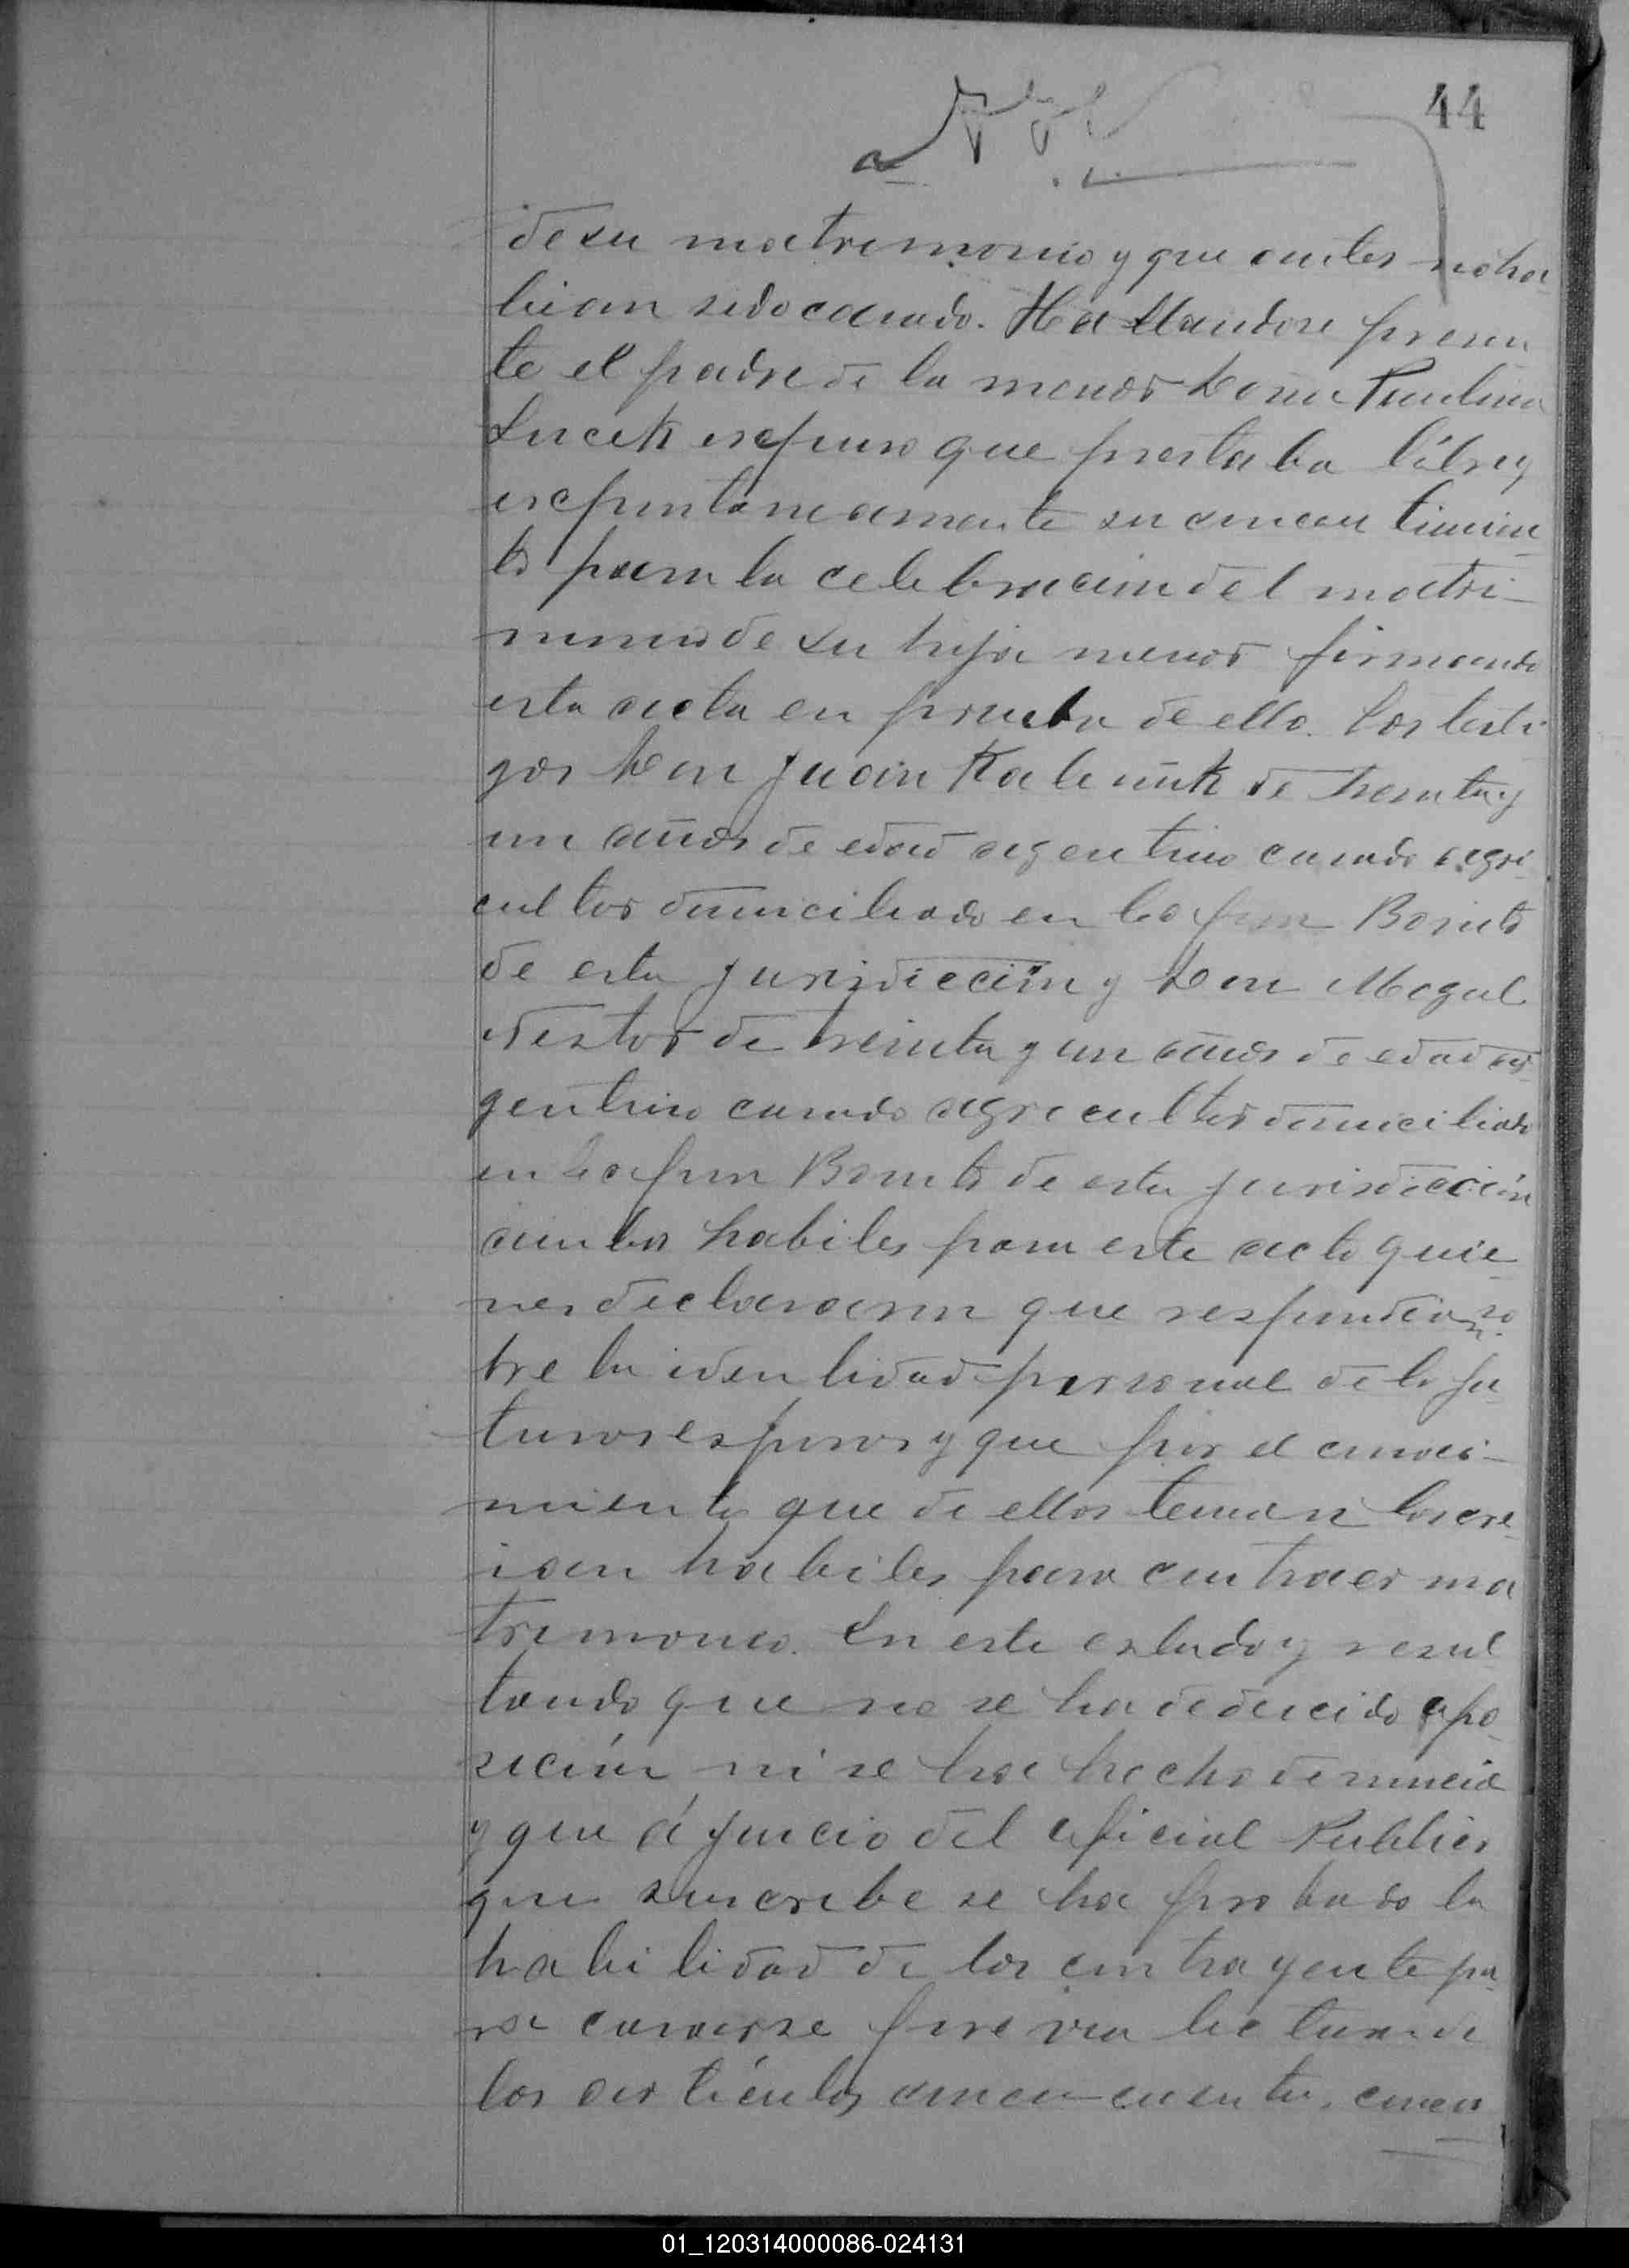 44
de su matrimonio y que antes no ha-
bian sido casado. Hallandose presen
te el padre de la menor Doña Paulina
expuso que prestaba libre y
espontaneamente su consentimien-
to para la celebracion del matri-
monio de su hija menor firmando
esta acta en prueba de ello. Los testi-
gos Don Juan de treinta y
un años de edad argentino casado agri-
cultor domiciliado en Bonito
de esta jurisdicción y Don Magal
Nestor de treinta y un años de edad ar-
gentino casado agricultor domiciliado
en Bonito de esta jurisdicción
ambos habiles para este acto quie-
nes declararon que respondian so-
bre la identidad personal de lo fu-
turos esposos y que por el conoci-
miento que de ellos tenian los cre-
ian habiles para contraer ma
trimonio. En este estado y resul
tando que no se ha deducido opo-
sición ni se ha hecho denuncia
y que á juicio del oficial Publico
que suscribe se ha probado la
habilidad de los contrayente pa-
ra casarse previa lectura de
los artículos cincuenta, cincu
01_120314000086-024131